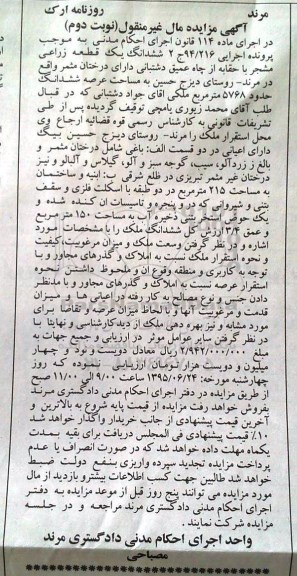 مرند
روزنامه ارک
آگهی مزایده مال غیرمنقول(نوبت دوم)
در اجرای ماده ۱۱۴ قانون اجرای احکام مدنی به موجب
پرونده اجرایی ۹۴/۲۱۶ج۲ ششدانگ یک قطعه زراعی
مشجر با حقابه از چاه عمیق دشتبانی دارای درختان مثمر واقع
در مرند- روستای دیزج حسین به مساحت عرصه ششدانگ
حدود ۵۷۶۸ مترمربع ملکی آقای جواد دشتبانی که در قبال
طلب آقای محمد زنوری یامچی توقیف گردیده پس از طی
تشریفات قانونی به کارشناس رسمی قوه قضائیه ارجاع وی
محل استقرار ملک را مرند- روستای دیزج حسین بیگ
دارای اعیانی در دو قسمت الف: باغی شامل درختان مثمر و
بالغ از زردآلو، سیب، گوجه سبز و آلو، گیلاس و آلبالو و نیز
درختان غیر مثمر تبریزی در ظلع شرقی ب: ابنیه و ساختمان
به مساحت ۲۱۵ مترمربع در دو طبقه با اسکلت فلزی و سقف
بتنی و شیروانی که در و پنجره و تاسیسات ان کنده شده و
یک حوض ذخیره آب به مساحت ۱۵۰ متر مربع
و عمق ۳/۴ ارزش کل ششدانگ ملک را با مشخصات مورد
اشاره و در نظر گرفتن وسعت ملک و میزان مرغوبیت،کیفیت
و نحوه استقرار ملک نسبت به املاک و گذرهای مجاور و با
توجه به کاربری و منطقه وقوع آن و ملحوظ داشتن نحوه
استقرار عرصه نسبت به املاک و گذرهای مجاور و با مدنظر
دادن جنس و نوع مصالح به کار رفته در اعیانی ها و میزان
قدمت و مرغوبیت آنها و با لحاظ میزان عرضه و تقاضا برای
مورد مشابه و نیز بهره دهی ملک از دید کارشناسی و نهایتا با
در نظر گرفتن سایر عوامل موثر در ارزیابی و جمیع جهات به
مبلغ ۲/۹۴۲/۰۰۰/۰۰۰ ریال معادل دویست و نود و چهار
میلیون و دویست هزار تومان ارزیابی نموده که روز
چهارشنبه مورخه: ۱۳۹۵/۰۶/۲۴ ساعت ۹/۰۰ الی ۱۱/۰۰ صبح
از طریق مزایده در دفتر اجرای احکام مدنی دادگستری مرند
بفروش خواهد رفت مزایده از قیمت پایه شروع به بالاترین و
آخرین قیمت پیشنهادی از جانب خریدار واگذار خواهد شد
۱۰٪ قیمت پیشنهادی فی المجلس دریافت برای بقیه بمدت
یکماه مهلت داده خواهد شد که در صورت انصراف یا عدم
پرداخت مزایده تجدید سپرده واریزی بنفع دولت ضبط
خواهد شد طالبین جهت کسب اطلاعات بیشتر و بازدید از مال
مورد مزایده می توانند پنج روز قبل از موعد مزایده به دفتر
اجرای احکام مدنی دادگستری مرند مراجعه و در جلسه
مزایده شرکت نمایند.
واحد اجرای احکام مدنی دادگستری مرند
مصباحی